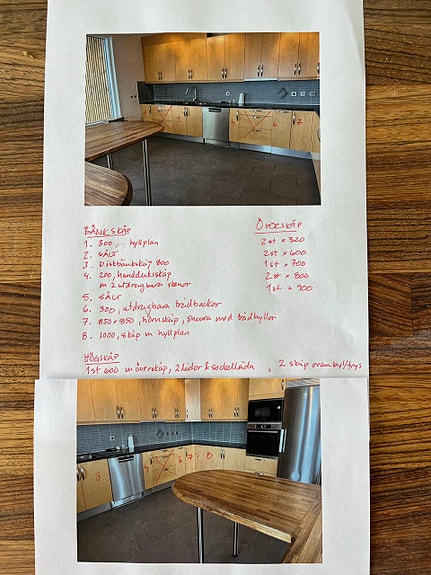 BÄNKSKÅP
1. 300, hyllplan
2. SÅLT
3. Diskbänkskåp 800
4. 200, handdukskåp
m 2 utdragbara stänger
5. SÅLT
6. 300, utdragbara trådbackar
7. 850 x 850, hörnskåp, snurra med trådhyllor
8. 1000, skåp m hyllplan
ÖVERSKÅP
2st x 320
2st x 600
1st x 700
2st x 800
1st x 900
HÖGSKÅP
1st 600 m överskåp, 2 lådor & sockellåda, 2 skåp ovan kyl/frys
3
6
7
3
6
7
8